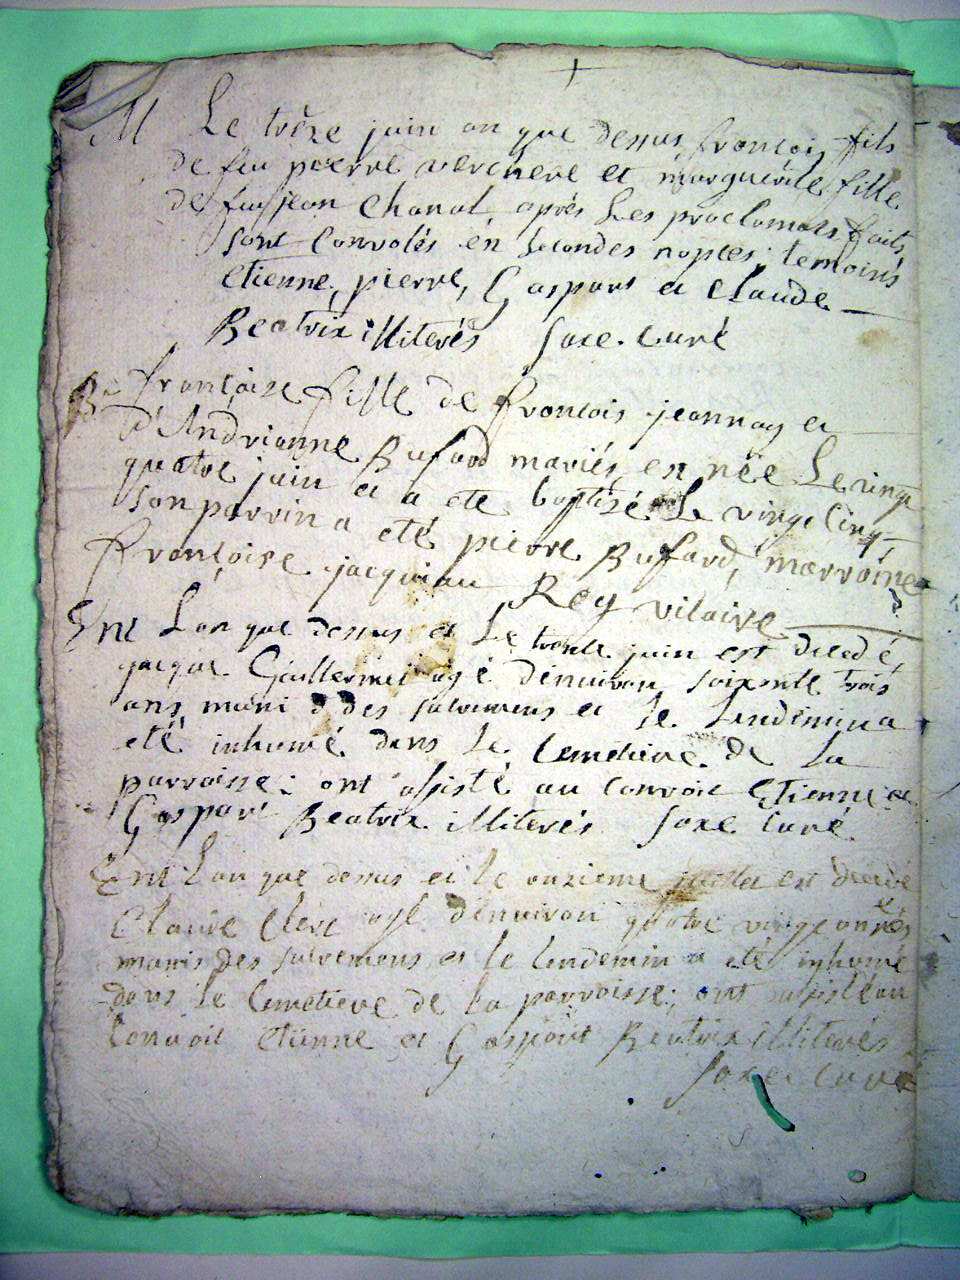 M Le trêze juin an que dessus françois fils
de feu pierre verchere et marguerite fille
de feu jean Chanal, après Les proclamats faits
sont Convolés en secondes nopces; temoins
Etienne, pierre, Gaspart et Claude
Beatrix illiterés Saxe Curé
Be françoise fille de françois jeannay et
d'Andrianne Bufard mariés est née Le vingt
quatre juin et a eté baptisée Le vingt Cinq
Son parrin a eté pierre Bufard, marroine
françoise jacquiau Rey vilaire
Ent L'an que dessus et Le trente juin est decedé
jacque Guillermet agé d'enuiron soixante trois
ans muni des sacremens et le Lendemin a
eté inhumé dans Le Cemetiere de La
parroisse: ont assisté au Convoit Etienne et
Gaspart Beatrix illiterés Saxe Curé
Ent L'an que dessus et le onzieme juillet est décédé
Claude Clerc agé d'enuiron quatre vingt années
munis des sacremens et le lendemin a eté inhumé
dans le Cemetiere de la parroisse; ont assisté au
Convoit etienne et Gaspart Beatrix illiterés
Saxe Curé